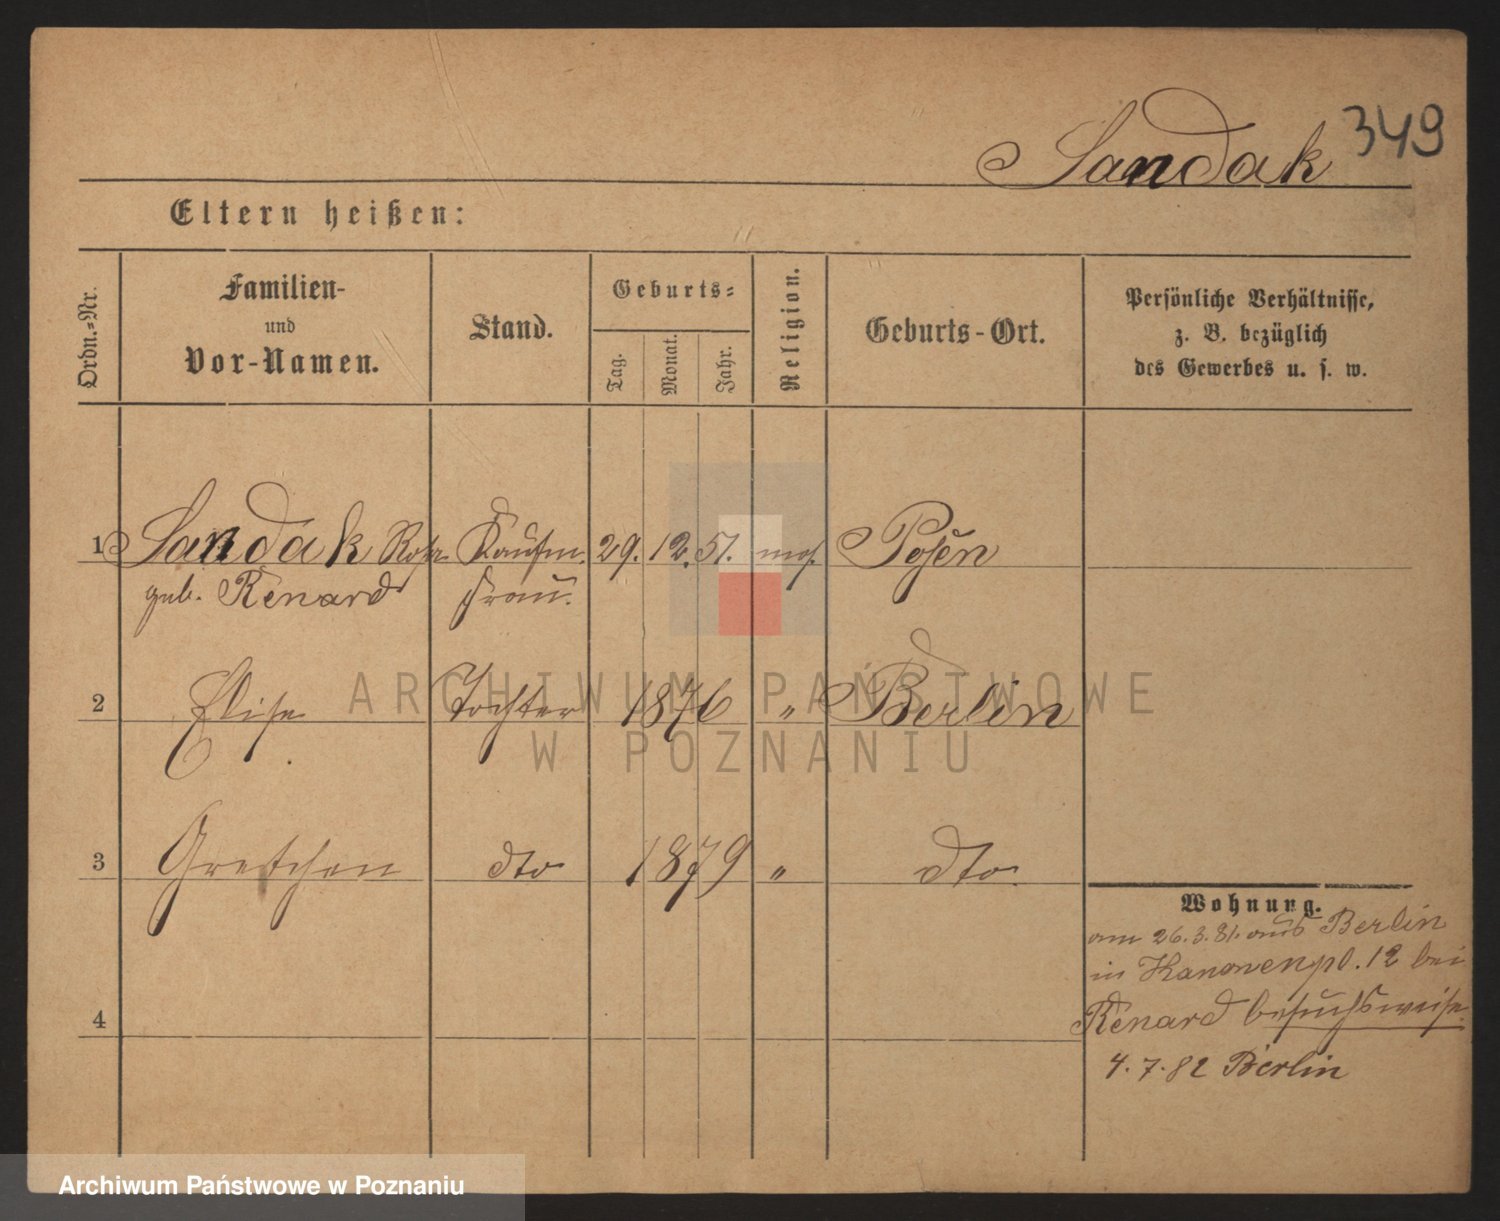 Sandak 349
Eltern heißen:
Ordn.-Nr.
Familien-
und
Vor-Namen.
Stand.
Geburts-
Tag.
Monat.
Jahr.
Religion.
Geburts-Ort.
Persönliche Verhältnisse,
z. B. bezüglich
des Gewerbes u. s. w.
1 Sandak Rosa Kaufm. 29. 12. 51. mos. Posen
geb. Renard Frau.
2 Elise Tochter 1876 " Berlin
3 Gretchen dto 1879 " dto.
4
Wohnung.
am 26.3.81. aus Berlin
in Kanonenpl. 12 bei
Renard besuchsweise.
4.7.82 Berlin
ARCHIWUM PAŃSTWOWE
W POZNANIU
Archiwum Państwowe w Poznaniu